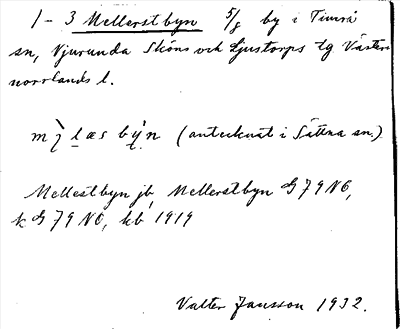 1-3 Mellerstbyn 5/8 by i Timrå
sn, Njurunda Sköns och Ljustorps tg Väster-
norrlands l.
læs bỵ̀n (antecknat i Sättna sn.)
Mellestbyn jb, Mellerstbyn G 79 NÖ,
k G 79 NÖ, kb 1919
Valter Jansson 1932.